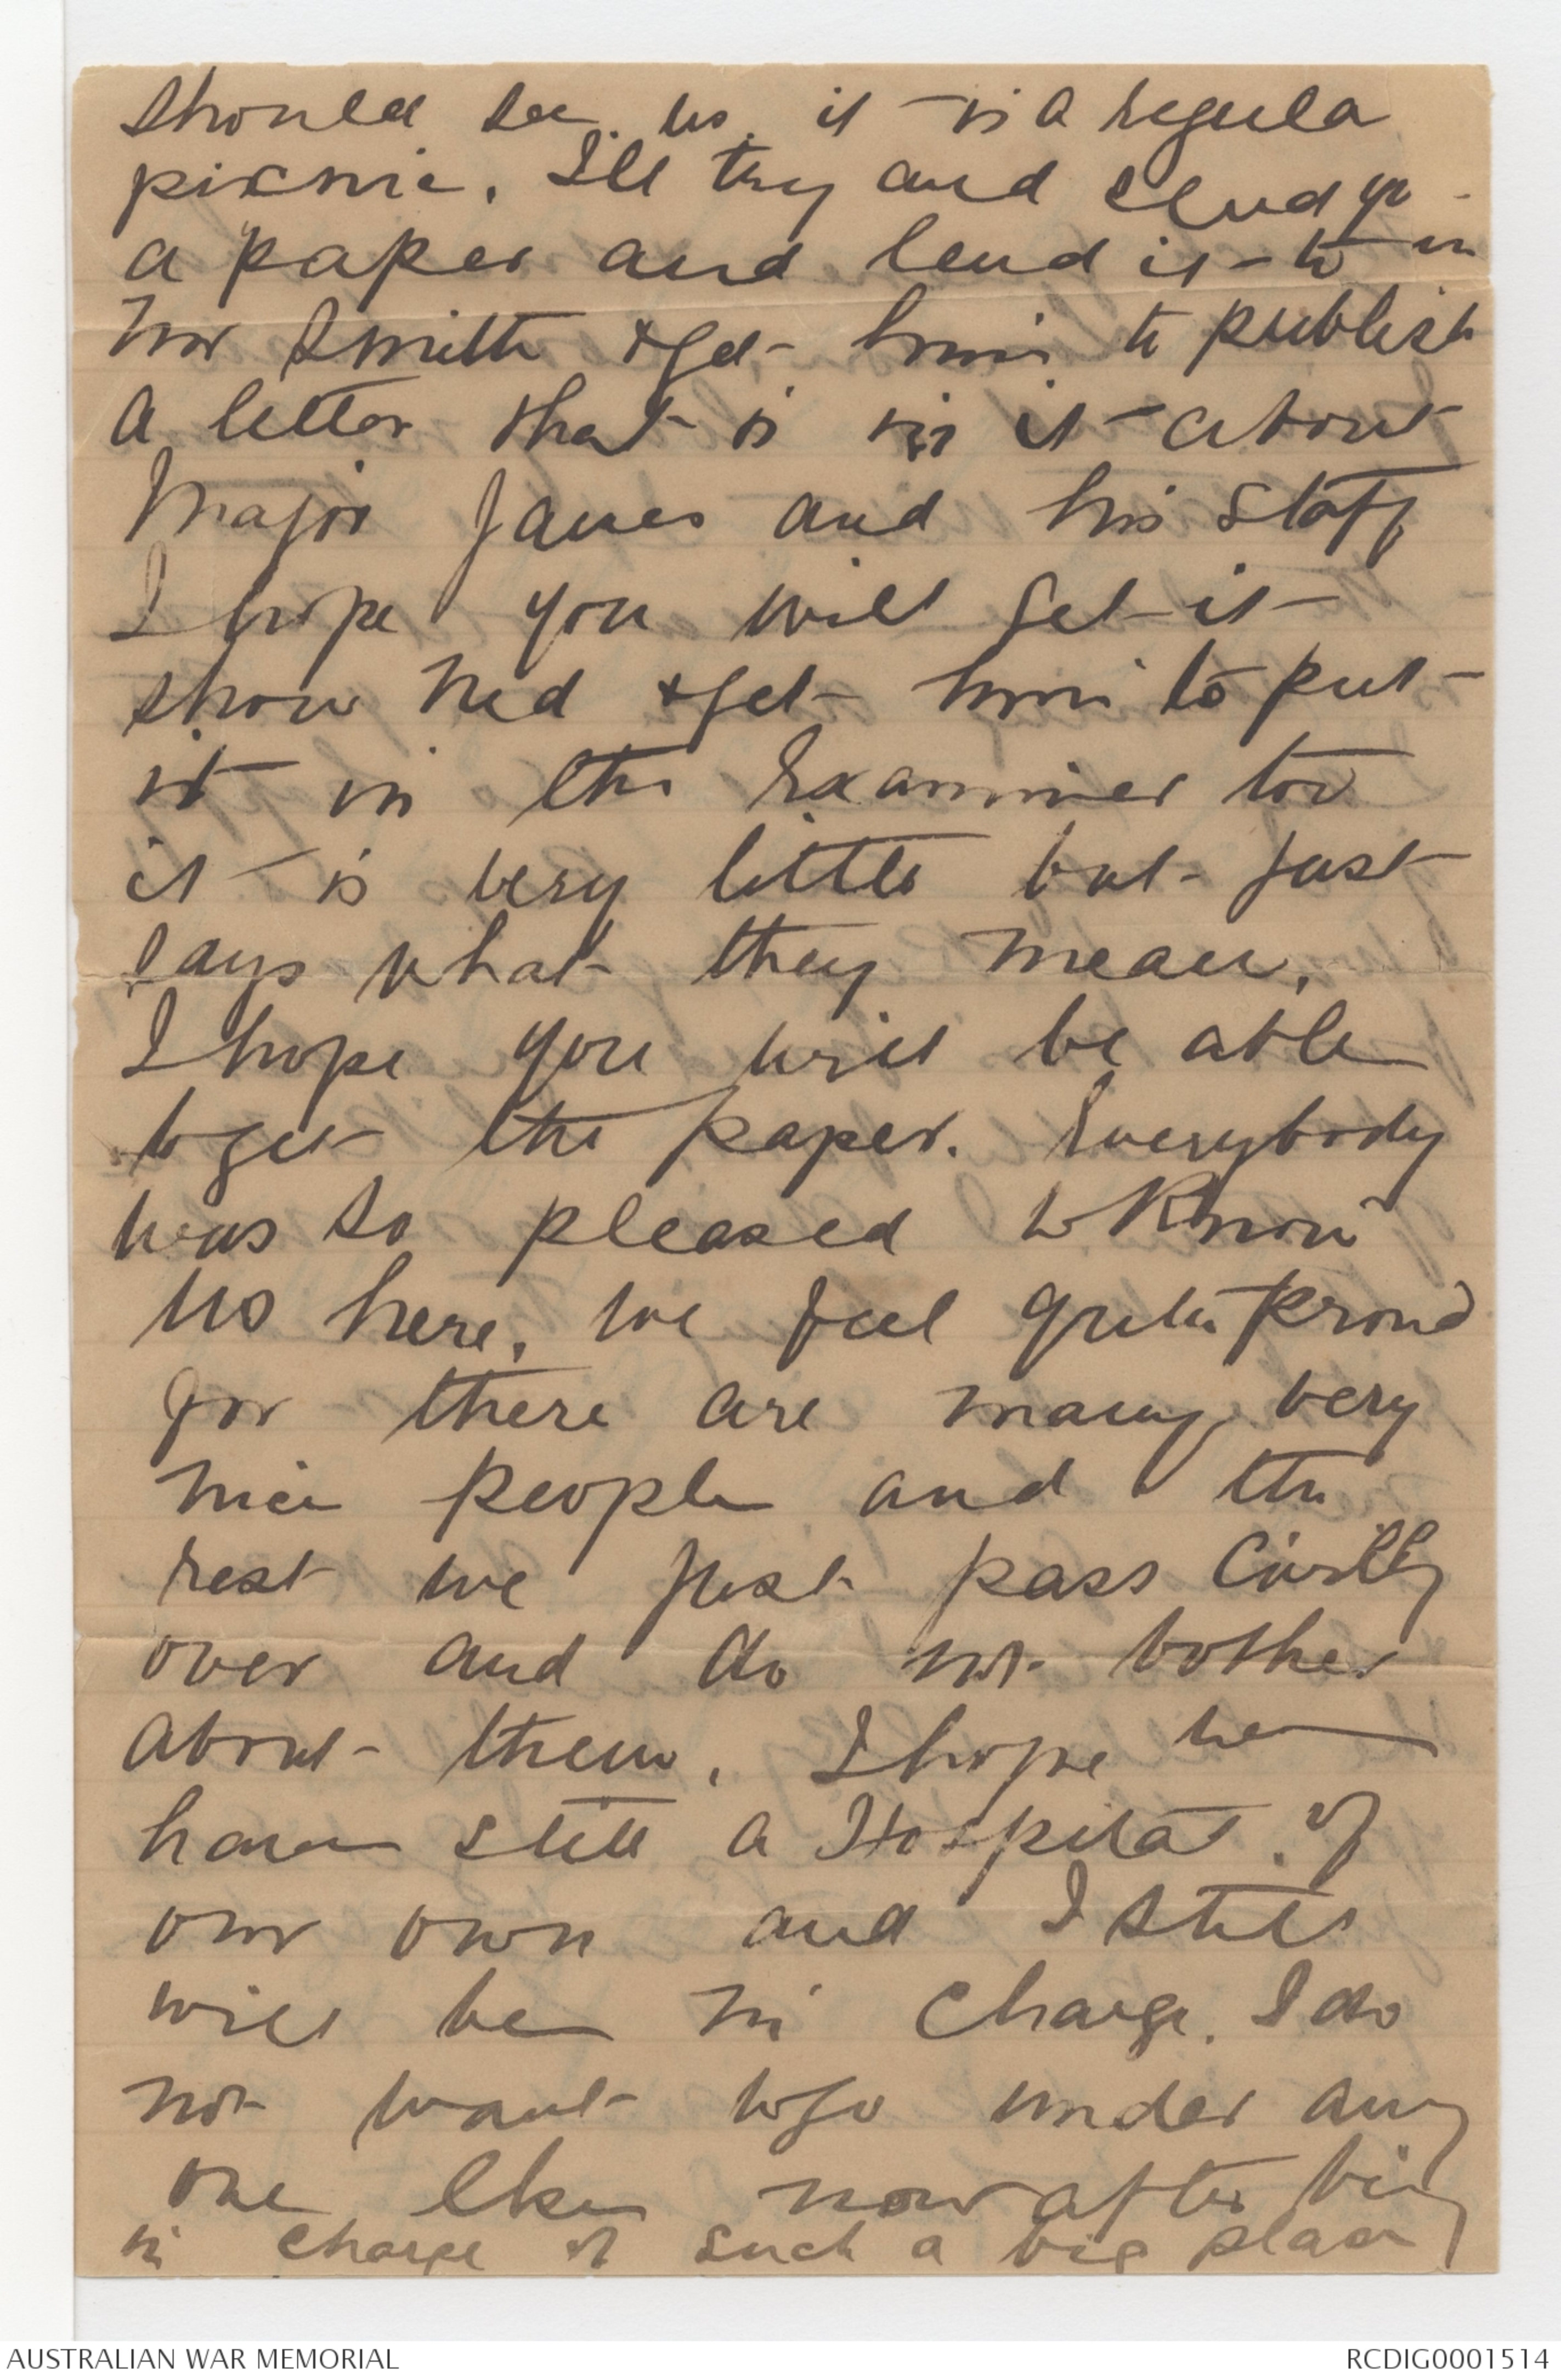 should see us, it is a regula
picnic. I'll try and send yo
a paper and lend it to
Mr Smith & get him to publish
a letter that is in it about
Major James and his staff
I hope you will get it
show Ned & get him to put
it in the Examiner too
it is very little but just
says what they mean.
I hope you will be able
to get the paper. Everybody
was so pleased to know
us here, we feel quite proud
for there are many very
nice people and the
rest we just pass civilly
over and do not bother
about them. I hope we
have still a Hospital of
our own and I still
will be in charge. I do
not want to go under any
one else now after being
in charge of such a big place
AUSTRALIAN WAR MEMORIAL
RCDIG0001514